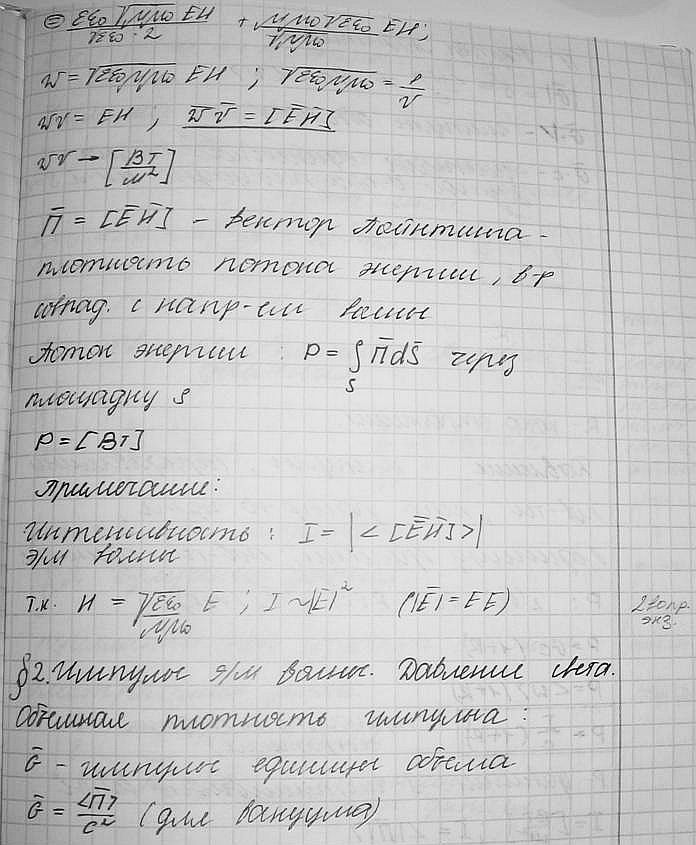 = εε₀√μμ₀ EH / √εε₀ · 2 + μμ₀√εε₀ EH / √μμ₀ ;
w = √εε₀μμ₀ EH ; √εε₀μμ₀ = 1/v
wv = EH ; w̄v̄ = [ĒH̄]
wv → [Вт/м²]
П̄ = [ĒH̄] – вектор Пойнтинга –
плотность потока энергии, в-р
совпад. с напр-ем волны
Поток энергии : P = ∫ П̄dS̄ через
S
площадку S
P = [Вт]
Примечание:
Интенсивность : I = |<[ĒH̄]>|
э/м волны
т.к. H = √εε₀/√μμ₀ E ; I ~ |Ē|² (|Ē| = EE)
2 вопр.
экз.
§2. Импульс э/м волны. Давление света.
Объемная плотность импульса :
Ḡ – импульс единицы объема
Ḡ = <П̄>/c² (для вакуума)